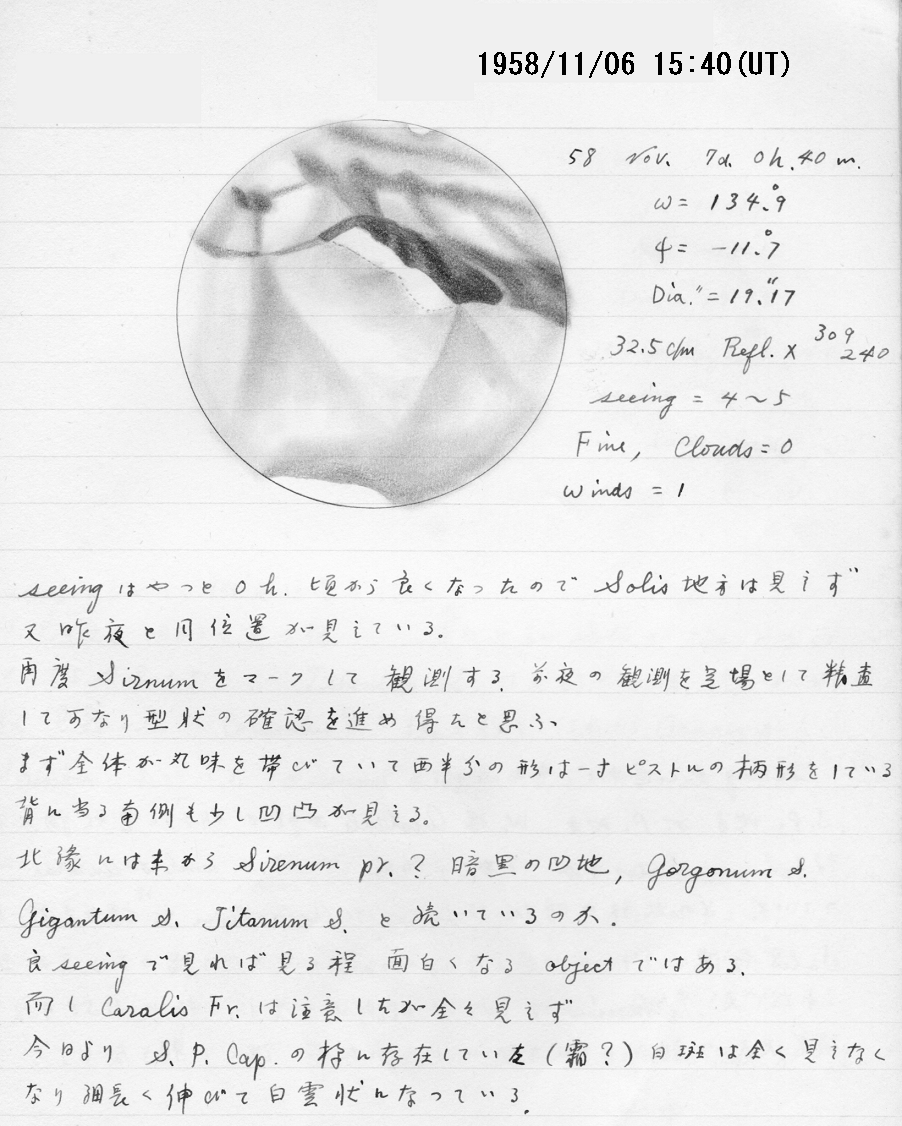 1958/11/06 15:40(UT)
58 Nov. 7d. 0h. 40m.
ω= 134.°9
φ= -11.°7
Dia." = 19."17
32.5 c/m Refl. × 309
240
seeing = 4~5
Fine, Clouds = 0
winds = 1
seeingはやっと0h.頃から良くなったのでSolis地方は見えず
又昨夜と同位置が見えている。
再度Sirnumをマークして観測する。前夜の観測を足場として精査
して可なり型状の確認を進め得たと思ふ、
まず全体が丸味を帯びていて西半分の形は一寸ピストルの柄形をしている
背に当る南側も少し凹凸が見える。
北縁には東からSirenum pr.? 暗黒の凹地, Gorgonum S.
Gigantum S. Titanum S. と続いているのか.
良seeingで見れば見る程 面白くなる objectではある.
而しCaralis Fr.は注意したが全々見えず
今日より S. P. Cap. の様に存在していた(霜?)白斑は全く見えなく
なり細長く伸びて白雲状になっている.